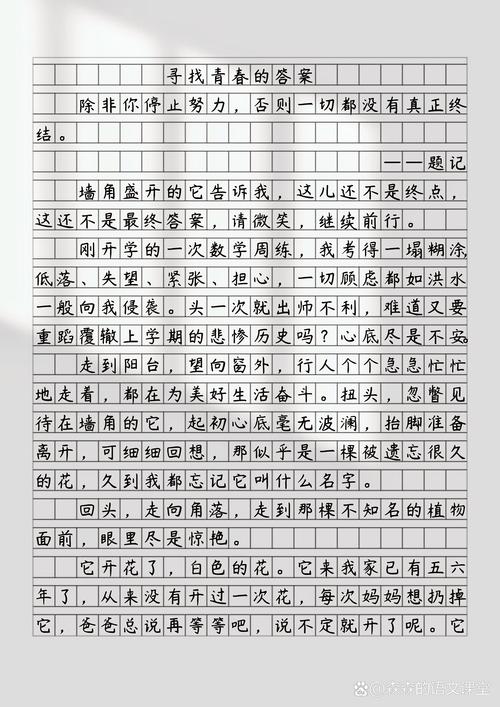 寻找青春的答案
除非你停止努力，否则一切都没有真正终
结。
——题记
墙角盛开的它告诉我，这儿还不是终点，
这还不是最终答案，请微笑，继续前行。
刚开学的一次数学周练，我考得一塌糊涂，
低落、失望、紧张、担心，一切顾虑都如洪水
一般向我侵袭。头一次就出师不利，难道又要
重蹈覆辙上学期的悲惨历史吗？心底尽是不安。
走到阳台，望向窗外，行人个个急急忙忙
地走着，都在为美好生活奋斗。扭头，忽瞥见
待在墙角的它，起初心底毫无波澜，抬脚准备
离开，可细细回想，那似乎是一棵被遗忘很久
的花，久到我都忘记它叫什么名字。
回头，走向角落，走到那棵不知名的植物
面前，眼里尽是惊艳。
它开花了，白色的花。它来我家已有五六
年了，从来没有开过一次花，每次妈妈想扔掉
它，爸爸总说再等等吧，说不定就开了呢。它
森森的语文课堂